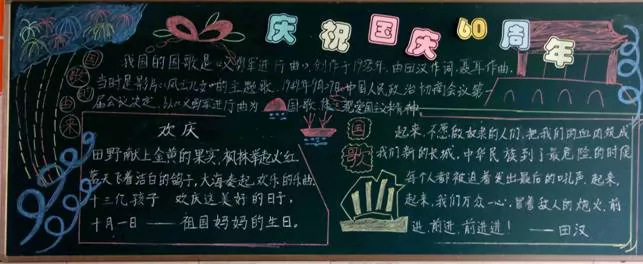 庆祝国庆60周年
国歌的由来
我国的国歌是《义勇军进行曲》,创作于1935年,由田汉作词,聂耳作曲,
当时是影片《风云儿女》的主题歌,1949年9月27日中国人民政治协商会议第一
届会议决定,以《义勇军进行曲为国歌
欢庆
田野献上金黄的果实,枫林举起火红
蓝天飞着洁白的鸽子,大海奏起欢乐的乐曲
十三亿孩子 欢庆这美好的日子,
十月一日——祖国妈妈的生日。
国歌
起来,不愿做奴隶的人们,把我们的血肉筑成
我们新的长城,中华民族到了最危险的时候
每个人都被迫着发出最后的吼声,起来,
起来,我们万众一心,冒着敌人的炮火,前
进,前进,前进进!——田汉